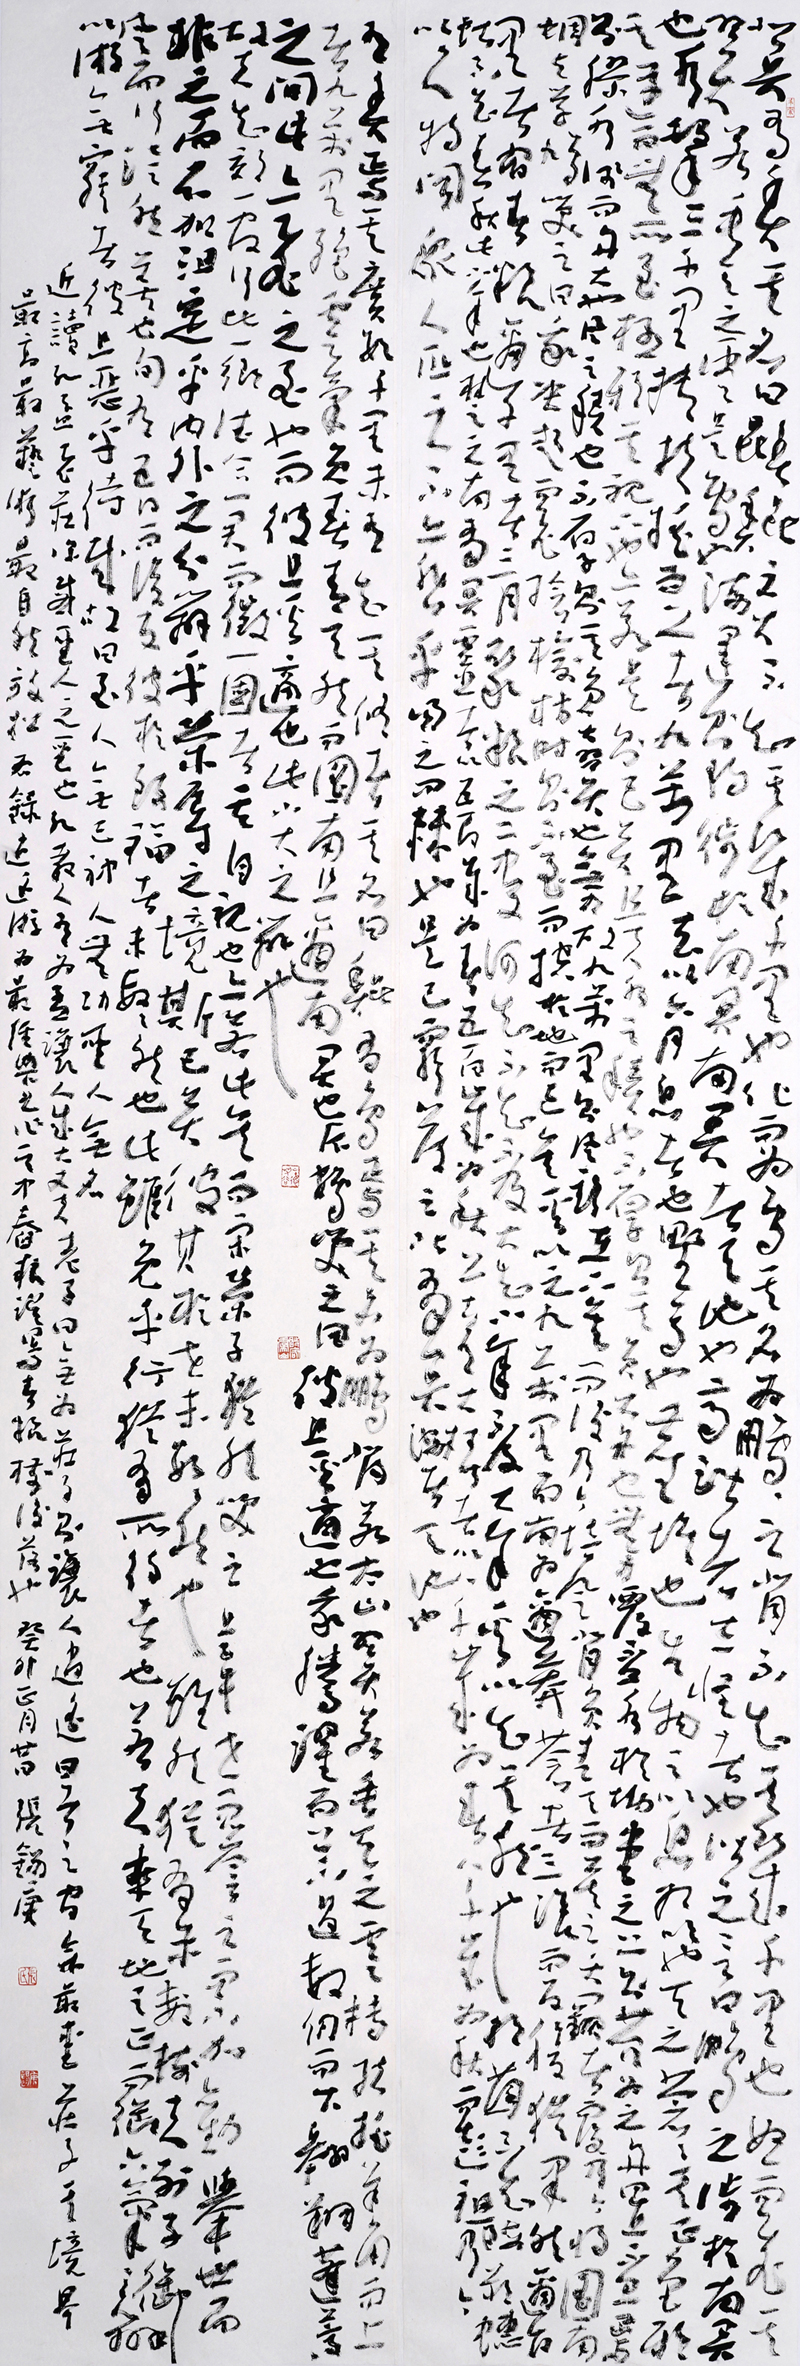 北冥有魚其名曰鯤鯤之大不知其幾千里也化而為鳥其名為鵬鵬之背不知其幾千里也怒而飛其
翼若垂天之雲是鳥也海運則將徙於南冥南冥者天池也齊諧者志怪者也諧之言曰鵬之徙於南冥
也水擊三千里摶扶搖而上者九萬里去以六月息者也野馬也塵埃也生物之以息相吹也天之蒼蒼其正色邪
其遠而無所至極邪其視下也亦若是則已矣且夫水之積也不厚則其負大舟也無力覆杯水於坳堂之上則芥為之舟置杯焉
則膠水淺而舟大也風之積也不厚則其負大翼也無力故九萬里則風斯在下矣而後乃今培風背負青天而莫之夭閼者而後乃今將圖南
蜩與學鳩笑之曰我決起而飛搶榆枋時則不至而控於地而已矣奚以之九萬里而南為適莽蒼者三湌而反腹猶果然適百
里者宿舂糧適千里者三月聚糧之二蟲又何知小知不及大知小年不及大年奚以知其然也朝菌不知晦朔蟪
蛄不知春秋此小年也楚之南有冥靈者以五百歲為春五百歲為秋上古有大椿者以八千歲為春八千歲為秋而彭祖乃今
以久特聞眾人匹之不亦悲乎湯之問棘也是已窮髮之北有冥海者天池也
有魚焉其廣數千里未有知其修者其名曰鯤有鳥焉其名為鵬背若太山翼若垂天之雲摶扶搖羊角而上
者九萬里絕雲氣負青天然後圖南且適南冥也斥鴳笑之曰彼且奚適也我騰躍而上不過數仞而下翱翔蓬蒿
之間此亦飛之至也而彼且奚適也此小大之辯也
故夫知效一官行比一鄉德合一君而徵一國者其自視也亦若此矣而宋榮子猶然笑之且舉世而譽之而不加勸舉世而
非之而不加沮定乎內外之分辯乎榮辱之境斯已矣彼其於世未數數然也雖然猶有未樹也夫列子御
風而行泠然善也旬有五日而後反彼於致福者未數數然也此雖免乎行猶有所待者也若夫乘天地之正而御六氣之辯
以游無窮者彼且惡乎待哉故曰至人無己神人無功聖人無名
近讀孔孟老莊深感聖人之聖也孔教人有為孟讓人成大丈夫老子曰無為莊子則讓人逍遙四者之中余最愛莊子其境界
最高最藝術最自然放松故錄逍遙游為最癸卯正月廿四張錫庚